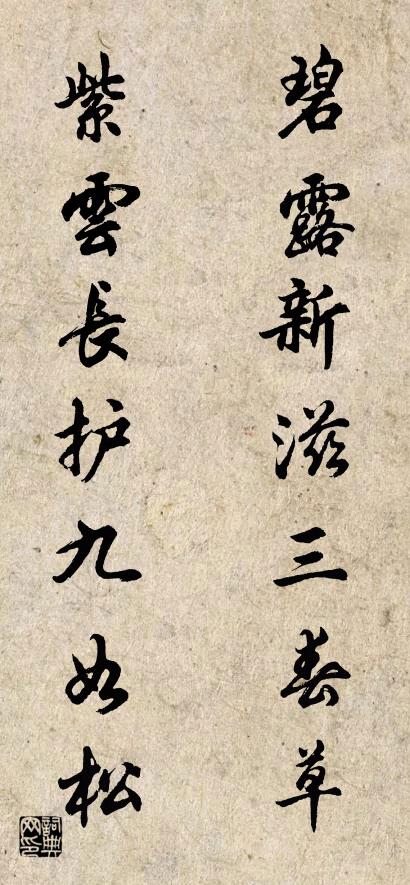 碧露新滋三春草
紫雲長护九如松
詞典网印